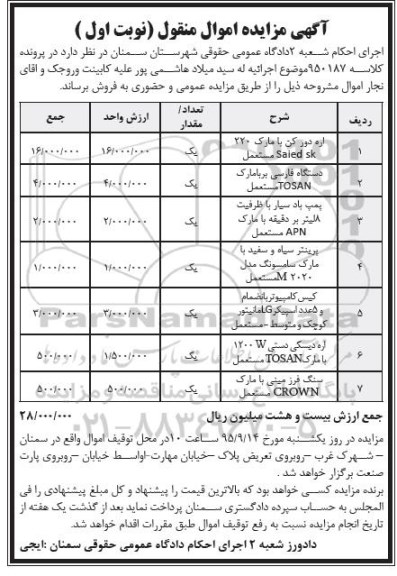 آگهی مزایده اموال منقول (نوبت اول )
اجرای احکام شعبه ۲دادگاه عمومی حقوقی شهرستان سمنان در نظر دارد در پرونده
کلاسه ۹۵۰۱۸۷موضوع اجرائیه له سید میلاد هاشمی پور علیه کابینت وروجک و اقای
نجار اموال مشروحه ذیل را از طریق مزایده عمومی و حضوری به فروش برساند.
ردیف شرح تعداد/مقدار ارزش واحد جمع
۱ اره دور کن با مارک ۲۲۰ Saied sk مستعمل یک ۱۶/۰۰۰/۰۰۰ ۱۶/۰۰۰/۰۰۰
۲ دستگاه فارسی بربامارک TOSANمستعمل یک ۴/۰۰۰/۰۰۰ ۴/۰۰۰/۰۰۰
۳ پمپ باد سیار با ظرفیت ۸لیتر بر دقیقه با مارک APN مستعمل یک ۲/۰۰۰/۰۰۰ ۲/۰۰۰/۰۰۰
۴ پرینتر سیاه و سفید با مارک سامسونگ مدل M۲۰۲۰مستعمل یک ۱/۰۰۰/۰۰۰ ۱/۰۰۰/۰۰۰
۵ کیس کامپیوتر بانضمام و ۵عدد اسپیکر LGمانیتور کوچک و متوسط - مستعمل یک ۳/۰۰۰/۰۰۰ ۳/۰۰۰/۰۰۰
۶ اره دیسکی دستی ۱۲۰۰ W با مارک TOSANمستعمل یک ۱/۵۰۰/۰۰۰ ۵۰۰/۰۰۰
۷ سنگ فرز مینی با مارک CROWN مستعمل یک ۵۰۰/۰۰۰ ۵۰۰/۰۰۰
جمع ارزش بیست و هشت میلیون ریال ۲۸/۰۰۰/۰۰۰
مزایده در روز یکشنبه مورخ ۹۵/۹/۱۴ ساعت ۱۰در محل توقیف اموال واقع در سمنان
– شهرک غرب –روبروی تعریض پلاک –خیابان مهارت-اواسط خیابان –روبروی پارت
صنعت برگزار خواهد شد .
برنده مزایده کسی خواهد بود که بالاترین قیمت را پیشنهاد و کل مبلغ پیشنهادی را فی
المجلس به حساب سپرده دادگستری سمنان پرداخت نماید بعد از گذشت یک هفته از
تاریخ انجام مزایده نسبت به رفع توقیف اموال طبق مقررات اقدام خواهد شد.
دادورز شعبه ۲ اجرای احکام دادگاه عمومی حقوقی سمنان :ایجی